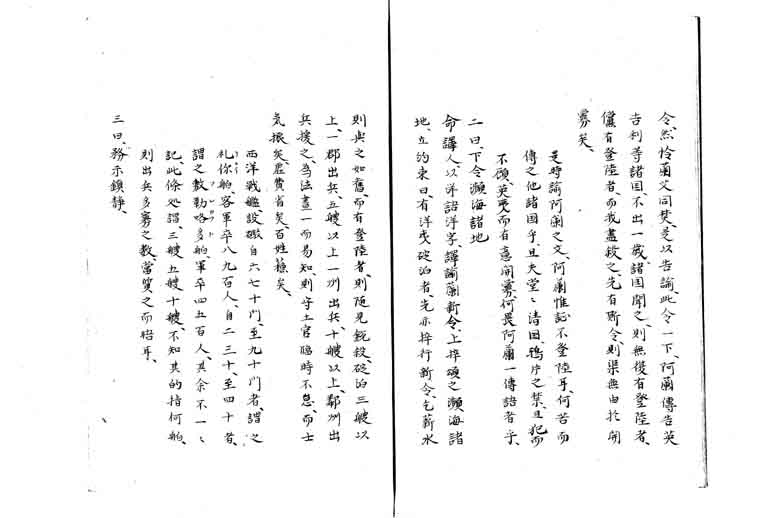 令、然怜蘭父同焚、是以告諭、此令一下、阿蘭傳告英
吉利等諸国、不出一歲、諸国聞之、則無復有登陸者、
儻有登陸者、而我盡殺之、先有所令、則渠無由於開
釁矣、
是時諭阿蘭之文、阿蘭惟認不登陸耳、何苦而
傳之他諸国乎、且天堂〻清国、鴉片之禁、且犯而
不顧、英夷而有意開釁、何畏阿蘭一傳語者乎、
二曰、下令瀕海諸地
命譯人、以洋語洋字、譯諭蘭新令、上梓頒之瀕海諸
地、立約束曰、有洋夷碇泊者、先示梓行新令、乞薪水
則與之如舊、而有登陸者、則随見鋭殺、碇泊三艘以
上、一郡出兵、五艘以上一州出兵、十艘以上、鄰州出
兵援之、為法畫一而易知、則守土官臨時不怠、而士
気振矣、虚費省矣、百姓蘓矣、
西洋戦艦設礟自六七十門、至九十門者、謂之
礼你舶、容軍卒八九百人、自二三十、至四十者、
謂之數勒咯多舶、軍卒四五百人、其余不一〻
記、此條処謂、三艘五艘十艘、不知其的指何舶、
則出兵多寡之數、當質之而始耳、
三曰、務示鎮静、